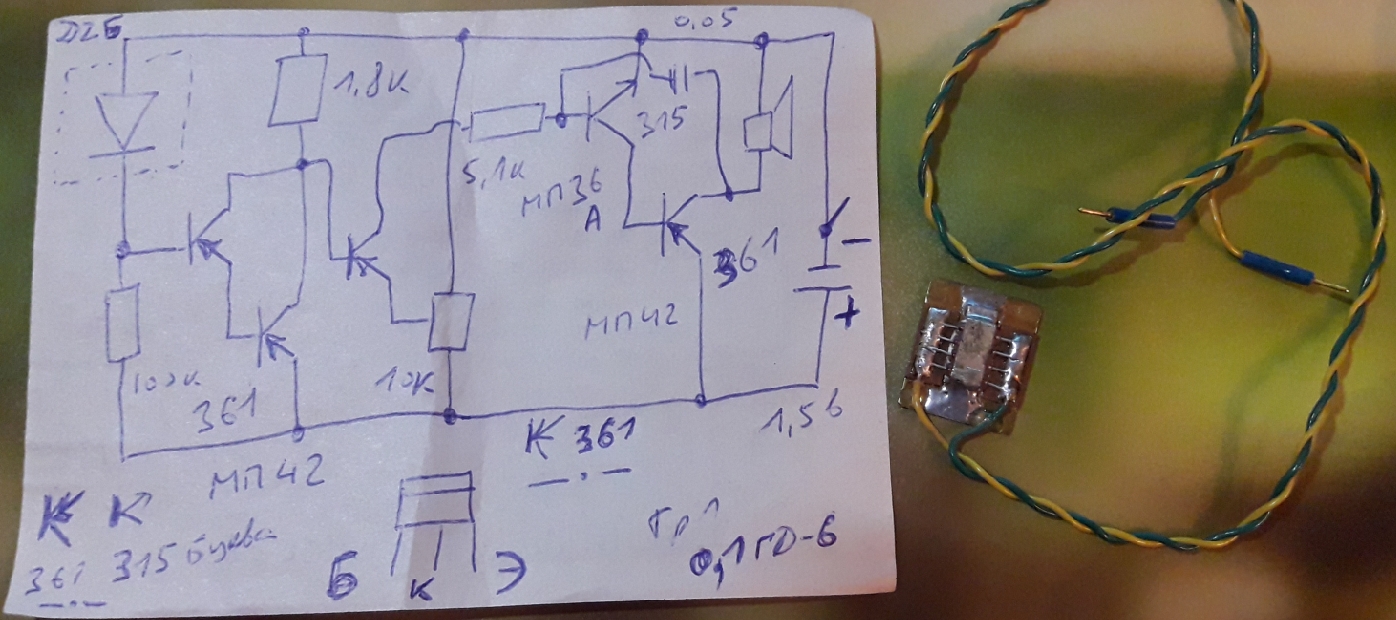 Д2Б
0,05
1,8К
315
5,1К
МП36
А
361
МП42
-
+
100К
10К
361
1,5 в
К 361
МП42
К К
361 315 буква
Б К Э
Гр 1
0,1ГД-6